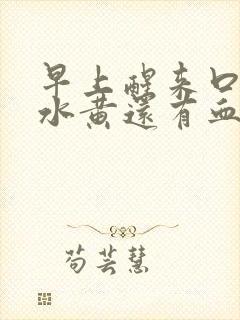 早上醒来口
水黄还有血
苟芸慧